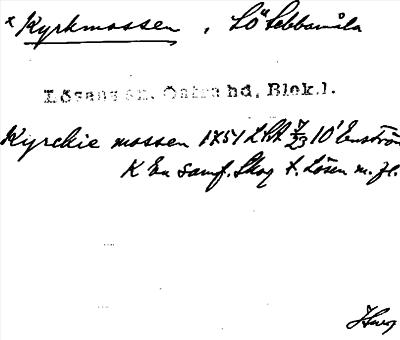 x Kyrkmossen, Lösebbamåla
Lösens sn. Östra hd, Blek.l.
Kyrckie mossen 1751 LSA 7/23 10' Enströ
K En samf. Skog t. Lösen m. fl.